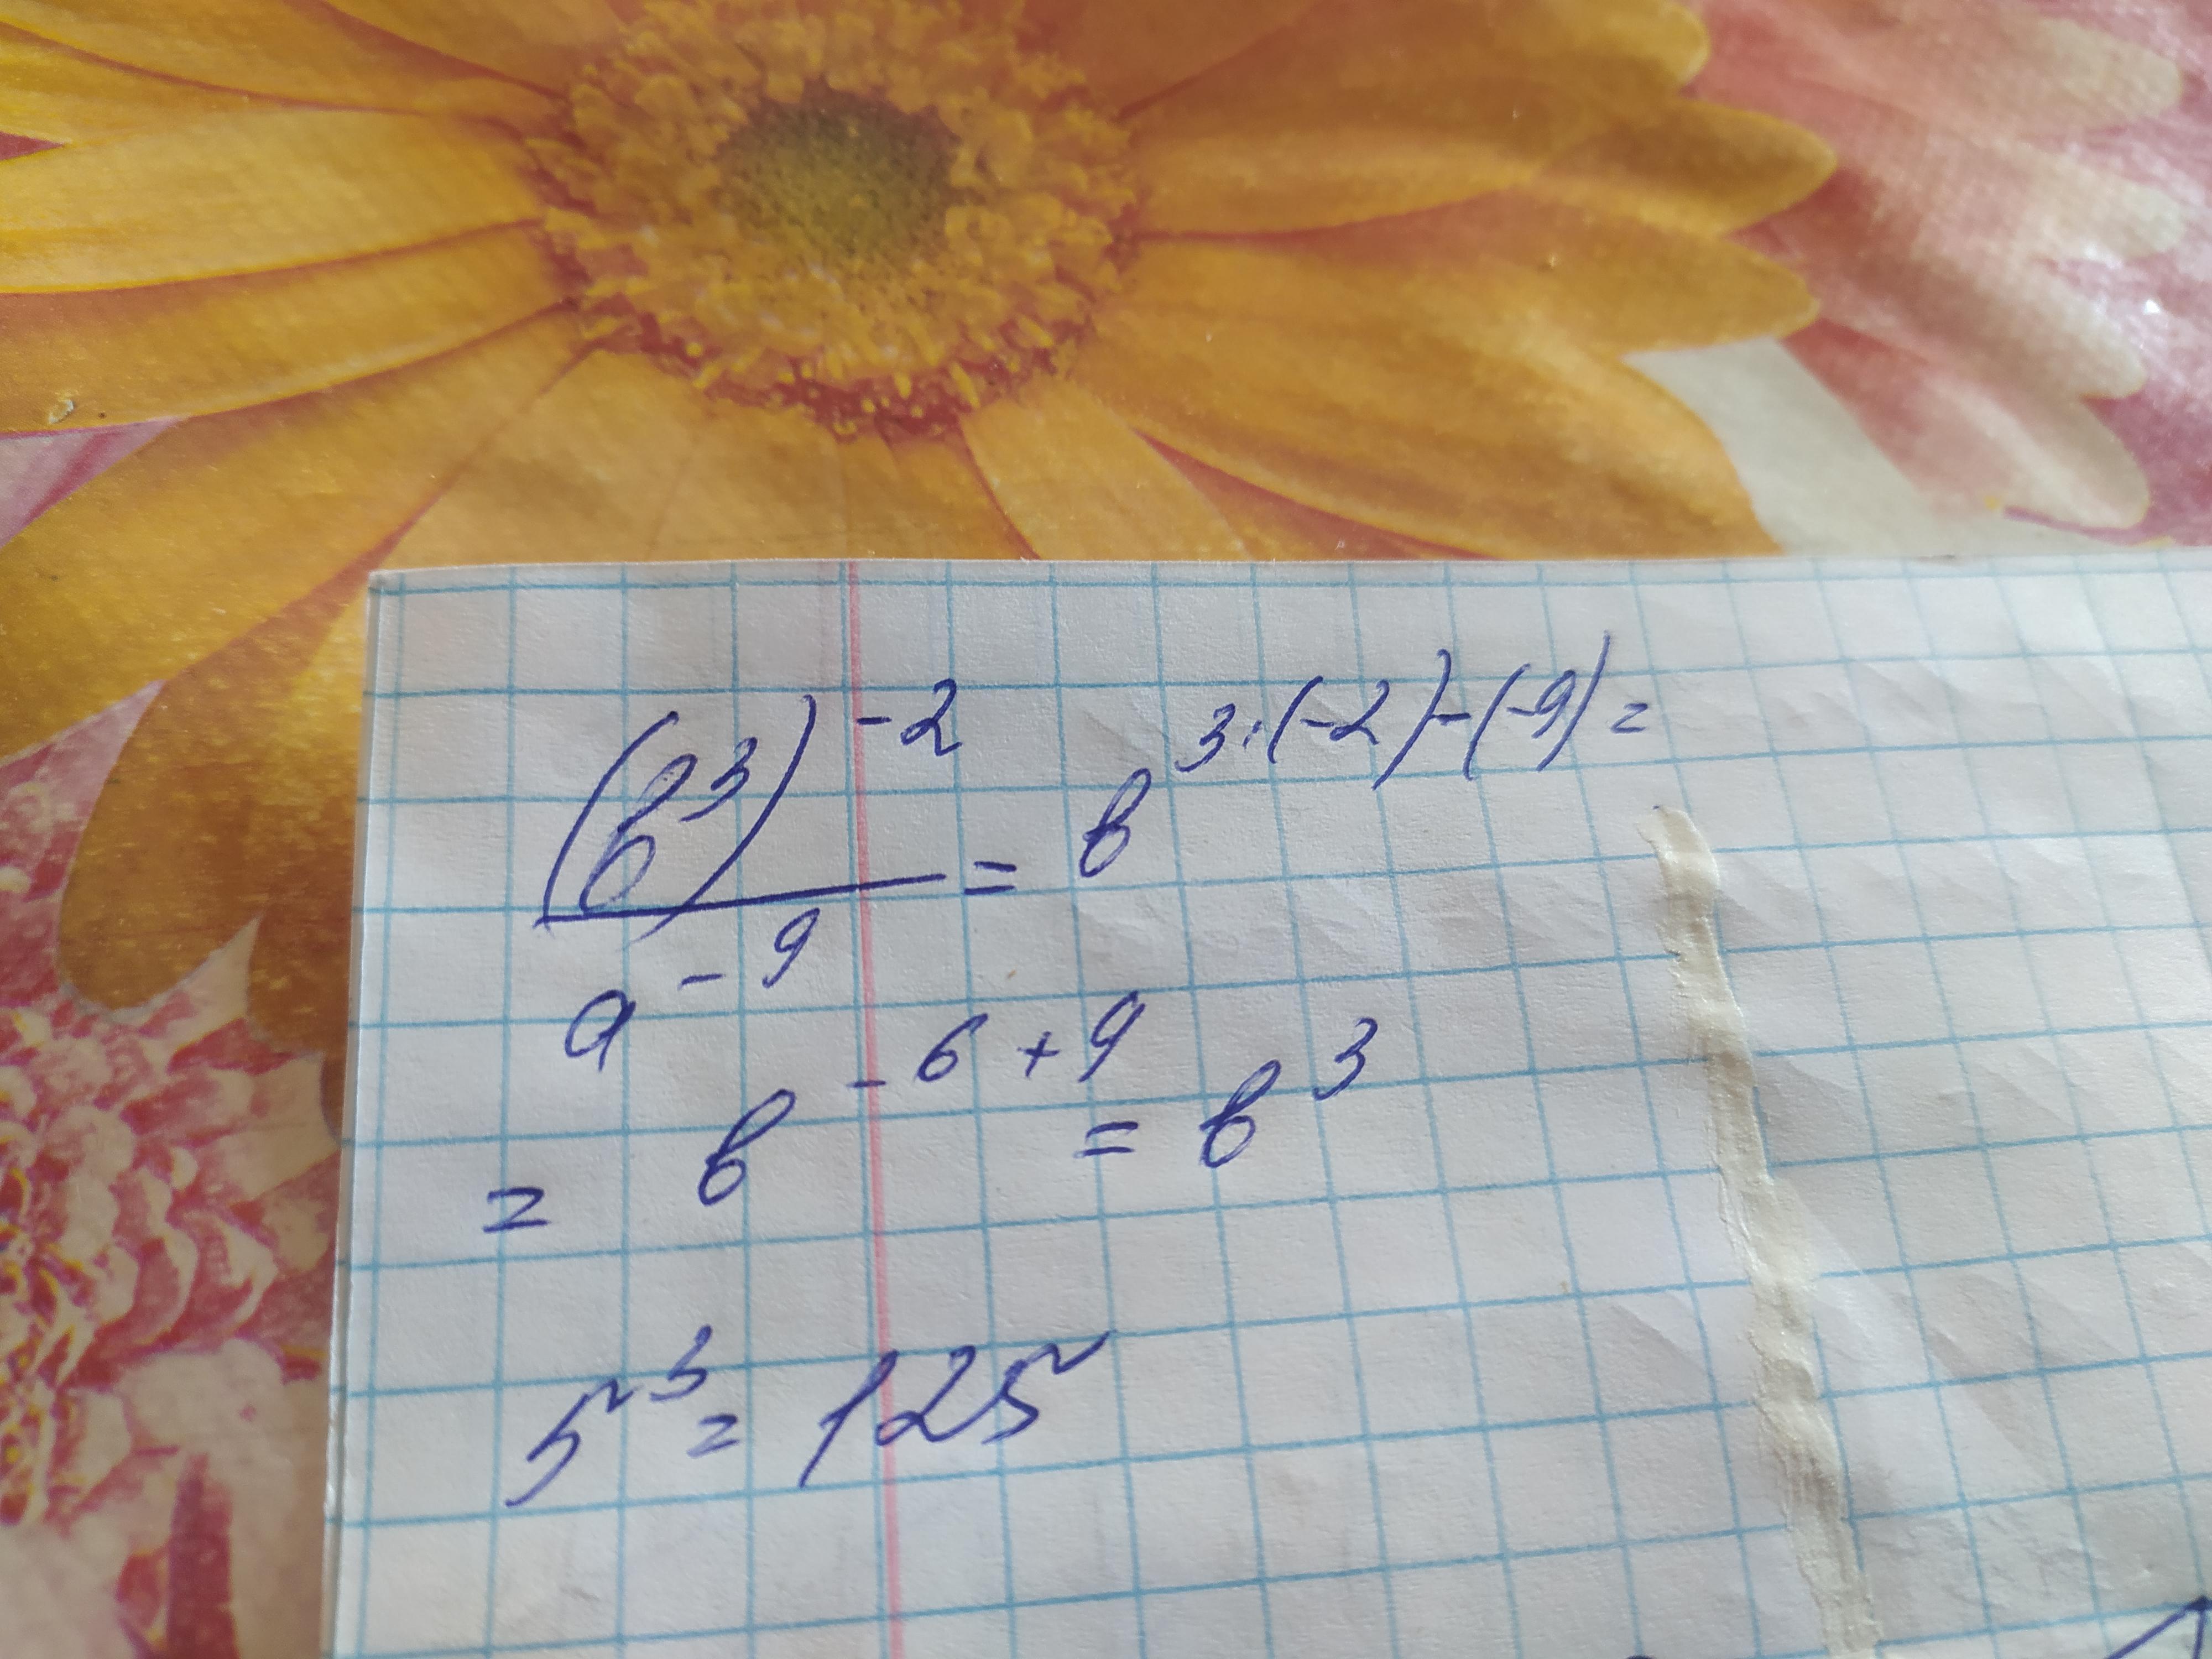 (b³)⁻² / a⁻⁹ = b^(3·(-2)-(-9)) =
= b^(-6+9) = b³
5³ = 125